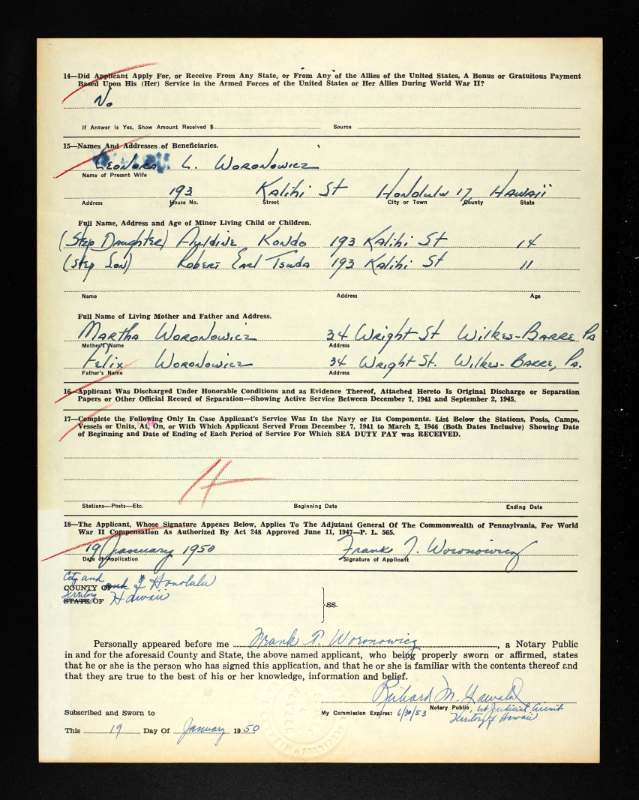 14—Did Applicant Apply For, or Receive From Any State, or From Any of the Allies of the United States, A Bonus or Gratuitous Payment
Based Upon His (Her) Service in the Armed Forces of the United States or Her Allies During World War II?
No
If Answer is Yes, Show Amount Received $ Source
15—Names And Addresses of Beneficiaries.
Leonora L. Woronowicz
Name of Present Wife
193 Kalihi St Honolulu 17 Hawaii
Address House No. Street City or Town County State
Full Name, Address and Age of Minor Living Child or Children.
(Step Daughter) Kondo 193 Kalihi St 14
(Step Son) Robert Earl Tsuda 193 Kalihi St 11
Name Address Age
Full Name of Living Mother and Father and Address.
Martha Woronowicz 34 Wright St Wilkes-Barre Pa
Mother's Name Address
Felix Woronowicz 34 Wright St. Wilkes-Barre, Pa.
Father's Name Address
16—Applicant Was Discharged Under Honorable Conditions and as Evidence Thereof, Attached Hereto Is Original Discharge or Separation
Papers or Other Official Record of Separation—Showing Active Service Between December 7, 1941 and September 2, 1945.
17—Complete the Following Only In Case Applicant's Service Was In the Navy or Its Components. List Below the Stations, Posts, Camps,
Vessels or Units, At, On, or With Which Applicant Served From December 7, 1941 to March 2, 1946 (Both Dates Inclusive) Showing Date
of Beginning and Date of Ending of Each Period of Service For Which SEA DUTY PAY was RECEIVED.
Stations—Posts—Etc. Beginning Date Ending Date
18—The Applicant, Whose Signature Appears Below, Applies To The Adjutant General Of The Commonwealth of Pennsylvania, For World
War II Compensation As Authorized By Act 248 Approved June 11, 1947—P. L. 565.
19 January 1950 Frank T. Woronowicz
Date of Application Signature of Applicant
City and
COUNTY OF Honolulu
Territory
STATE OF Hawaii
}ss.
Personally appeared before me Frank T. Woronowicz, a Notary Public
in and for the aforesaid County and State, the above named applicant, who being properly sworn or affirmed, states
that he or she is the person who has signed this application, and that he or she is familiar with the contents thereof and
that they are true to the best of his or her knowledge, information and belief.
Richard M.
Subscribed and Sworn to My Commission Expires: 6/30/53 Notary Public, 1st Judicial Circuit
Territory of Hawaii
This 19 Day Of January 1950